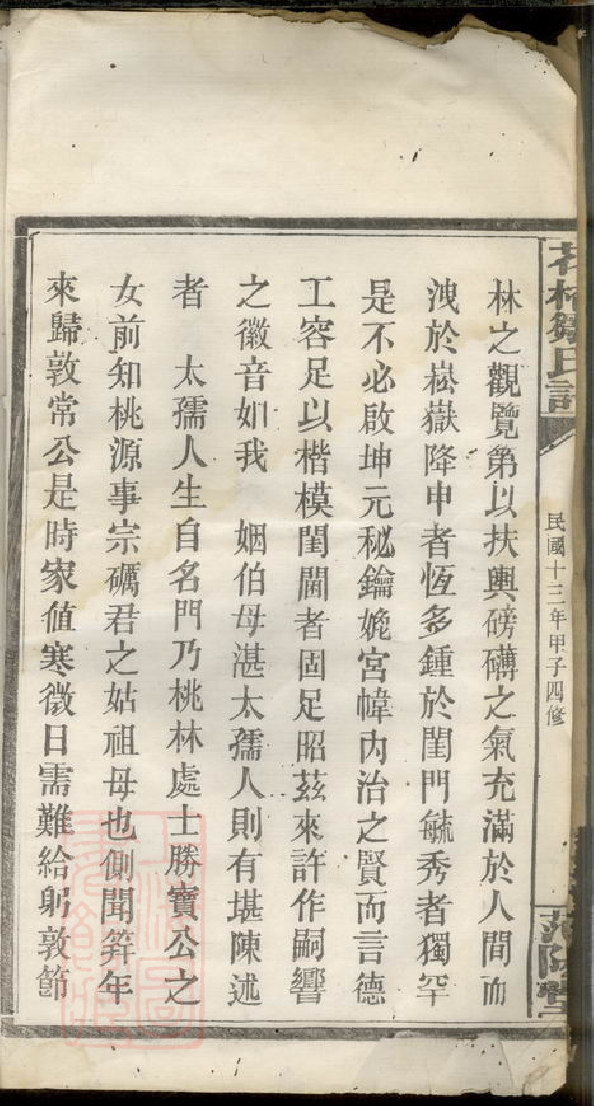 林之觀覽第以扶輿磅礴之氣充滿於人間而
洩於崧嶽降申者恆多鍾於閨門毓秀者獨罕
是不必啟坤元秘鑰婉宮幃內治之賢而言德
工容足以楷模閨閫者固足昭茲來許作嗣響
之徽音如我　姻伯母湛太孺人則有堪陳述
者　太孺人生自名門乃桃林處士勝寶公之
女前知桃源事宗礪君之姑祖母也側聞笄年
來歸敦常公是時家値寒微日需難給躬敦節
氏譜
民國十三年甲子四修
范陽堂